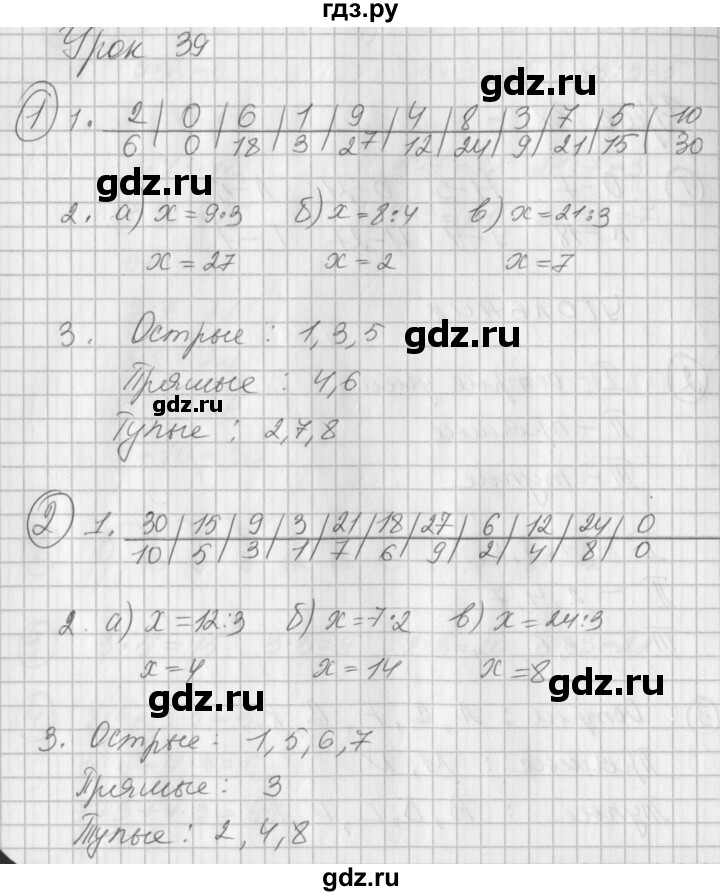 гдз.ру
Урок 39
gdz.ru
1 1. 2 | 0 | 6 | 1 | 9 | 4 | 8 | 3 | 7 | 5 | 10
6 | 0 | 18 | 3 | 27 | 12 | 24 | 9 | 21 | 15 | 30
gdz.ru gdz.ru
2. а) x=9·3 б) x=8:4 в) x=21:3
x=27 x=2 x=7
3. Острые: 1,3,5 gdz.ru
Прямые: 4,6
gdz.ru
Тупые: 2,7,8
2 1. 30 | 15 | 9 | 3 | 21 | 18 | 27 | 6 | 12 | 24 | 0
10 | 5 | 3 | 1 | 7 | 6 | 9 | 2 | 4 | 8 | 0
2. а) x=12:3 б) x=7·2 в) x=24:3
x=4 x=14 x=8
gdz.ru gdz.ru
3. Острые: 1,5,6,7
Прямые: 3
Тупые: 2,4,8
gdz.ru
гдз.ру